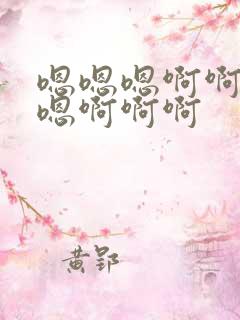 嗯嗯嗯啊啊
嗯啊啊啊
黄郢